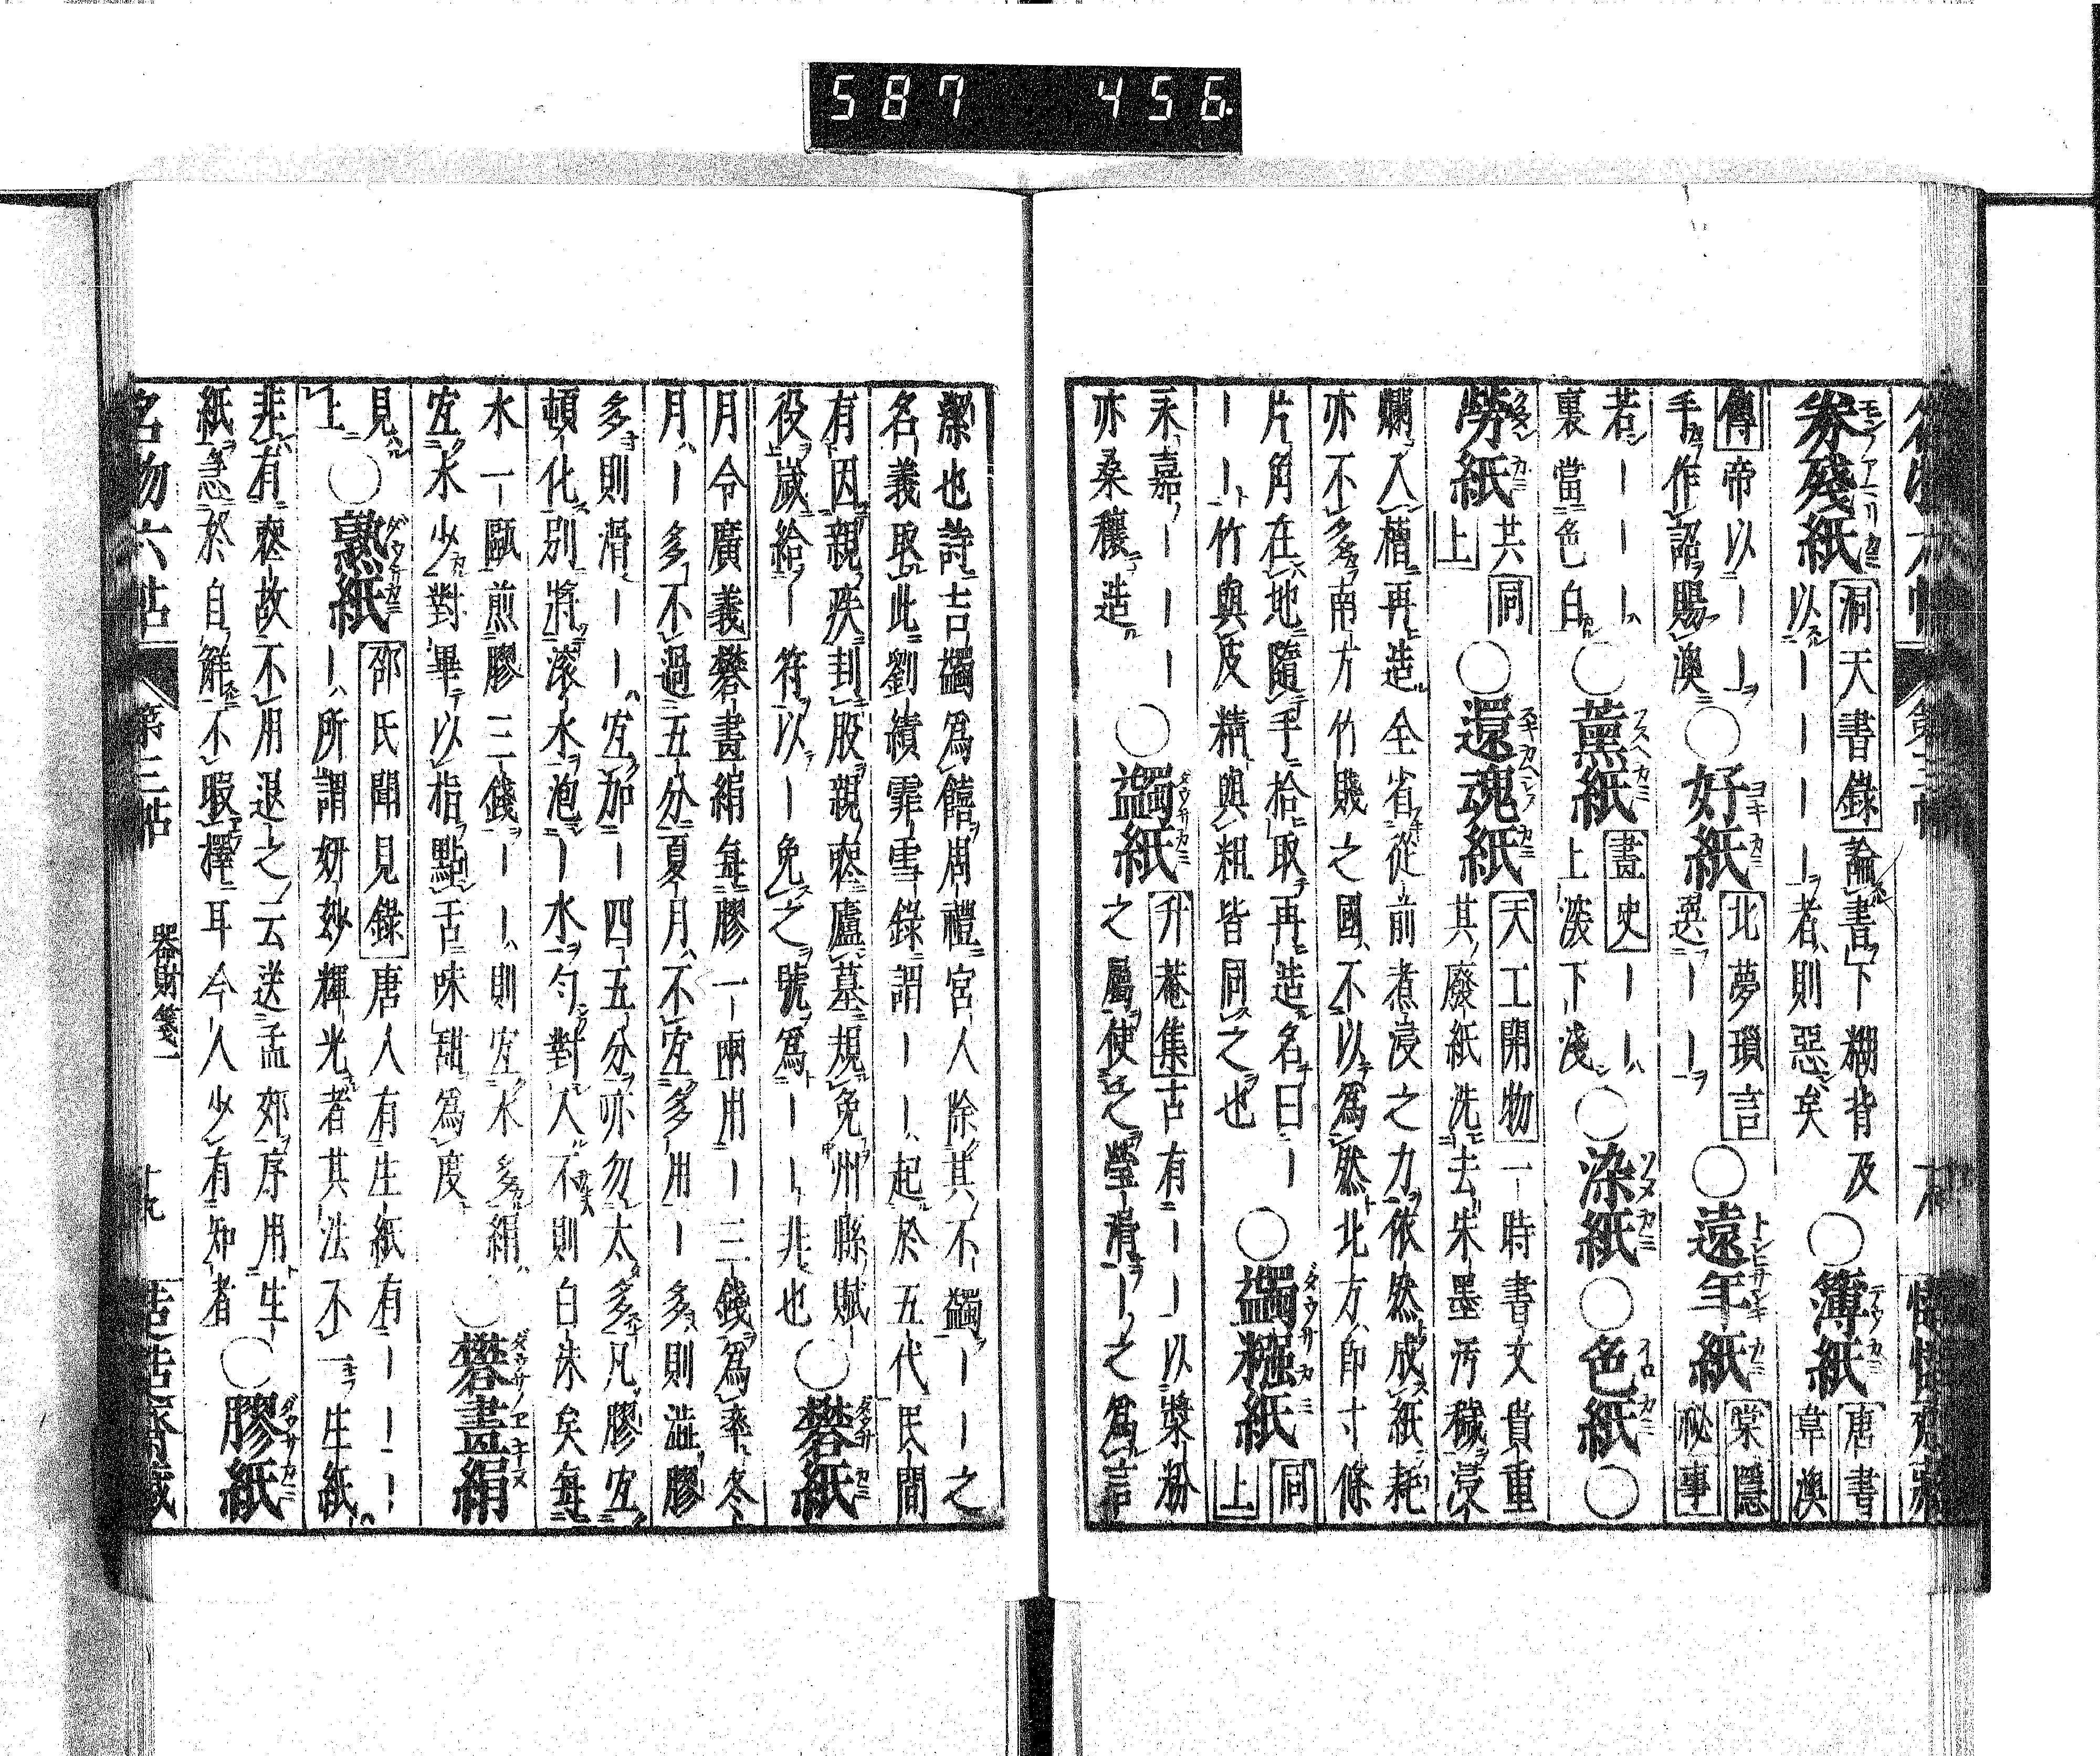 587 456
券殘紙 洞天書錄 論書下糊背及
以一一一一者則惡矣 ○簿紙 唐書韋澳
傳 帝以一一
手作詔賜澳 ○好紙 北夢瑣言
惡一一 ○遠年紙 棠隱秘事
若一一一
裏當色白 ○薰紙 畫史 一一
上淡下淺 ○染紙 ○色紙 ○
勞紙 共同上 ○還魂紙 天工開物 一時書文貴重
其廢紙洗去朱墨污穢浸
爛入槽再造全省從前煮浸之力依然成紙耗
亦不多南方竹賤之國不以爲然北方卽寸條
片角在地隨手拾取再造名曰一
一一竹與皮精與粗皆同之也 ○蠲糨紙 同上
永嘉一一一
亦桑穰造 ○蠲紙 升菴集 古有一一以漿粉
之屬使之瑩滑一之爲言
潔也詩吉蠲爲饎周禮宮人除其不蠲一一之
名義取此劉績霏雪錄謂一一起於五代民間
有因親疾刲股親喪廬墓規免州縣賦
役歲給一符以一免之號爲一一非也 ○礬紙
月令廣義 礬畫絹每膠一兩用一三錢爲率冬
月一多不過五分夏月不宜多用一多則澁膠
多則滑一一宜加一四五分亦勿太多凡膠宜
頓化別將滾水泡一水勻對入不則白朱矣每
水一甌煎膠三錢一一則宜水多絹
宜水少對畢以指點舌味甜爲度 ○礬畫絹
見
上 ○熟紙 邵氏聞見錄 唐人有生紙有一一一
一所謂妍妙輝光者其法不一生紙
非有喪故不用退之云送孟郊序用生
紙急於自解不暇擇耳今人少有知者 ○膠紙
名物六帖 第三帖 器財箋一 十九